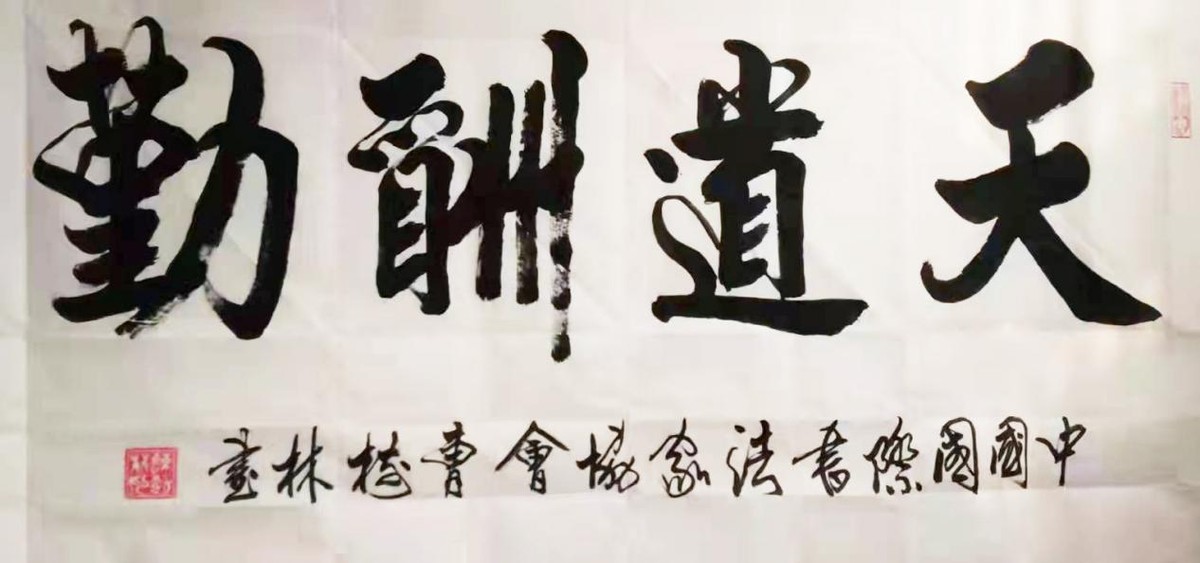 天道酬勤
中國國際書法家協會曹樹林書